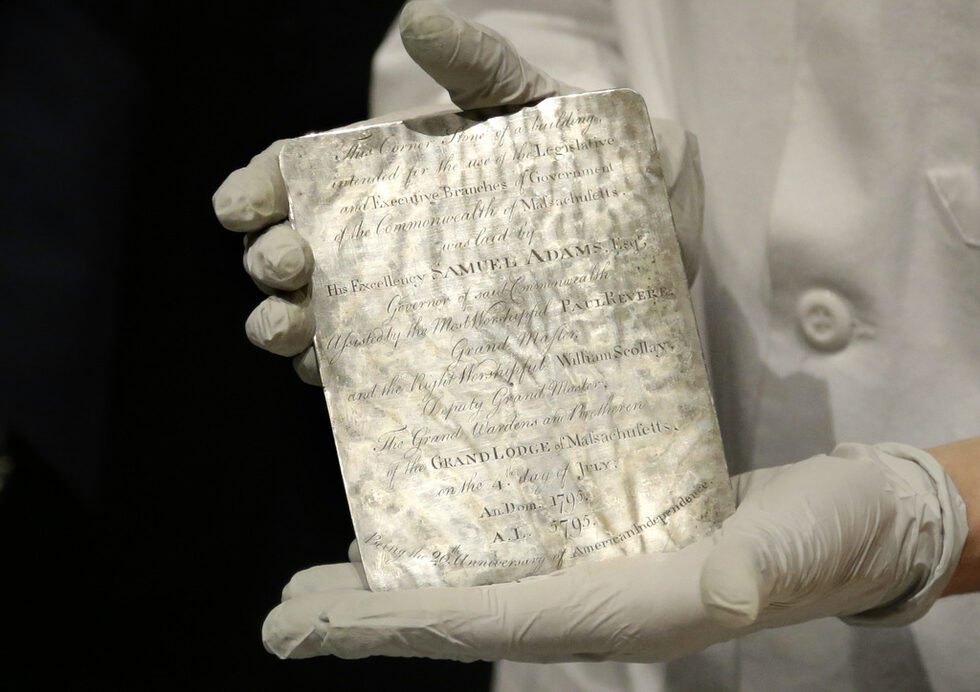 This Corner Stone of a building,
intended for the use of the Legislative
and Executive Branches of Government
of the Commonwealth of Maſsachuſetts.
was laid by
His Excellency SAMUEL ADAMS, Esqr.
Governor of said Commonwealth
Aſsisted by the Most Worshipful PAUL REVERE,
Grand Maſter,
and the Right Worshipful William Scollay,
Deputy Grand Master,
The Grand Wardens and Bretheren
of the GRAND LODGE of Maſsachuſetts.
on the 4th. day of JULY.
An. Dom. 1795.
A.L. 5795.
Being the 20th Anniversary of American Independence.